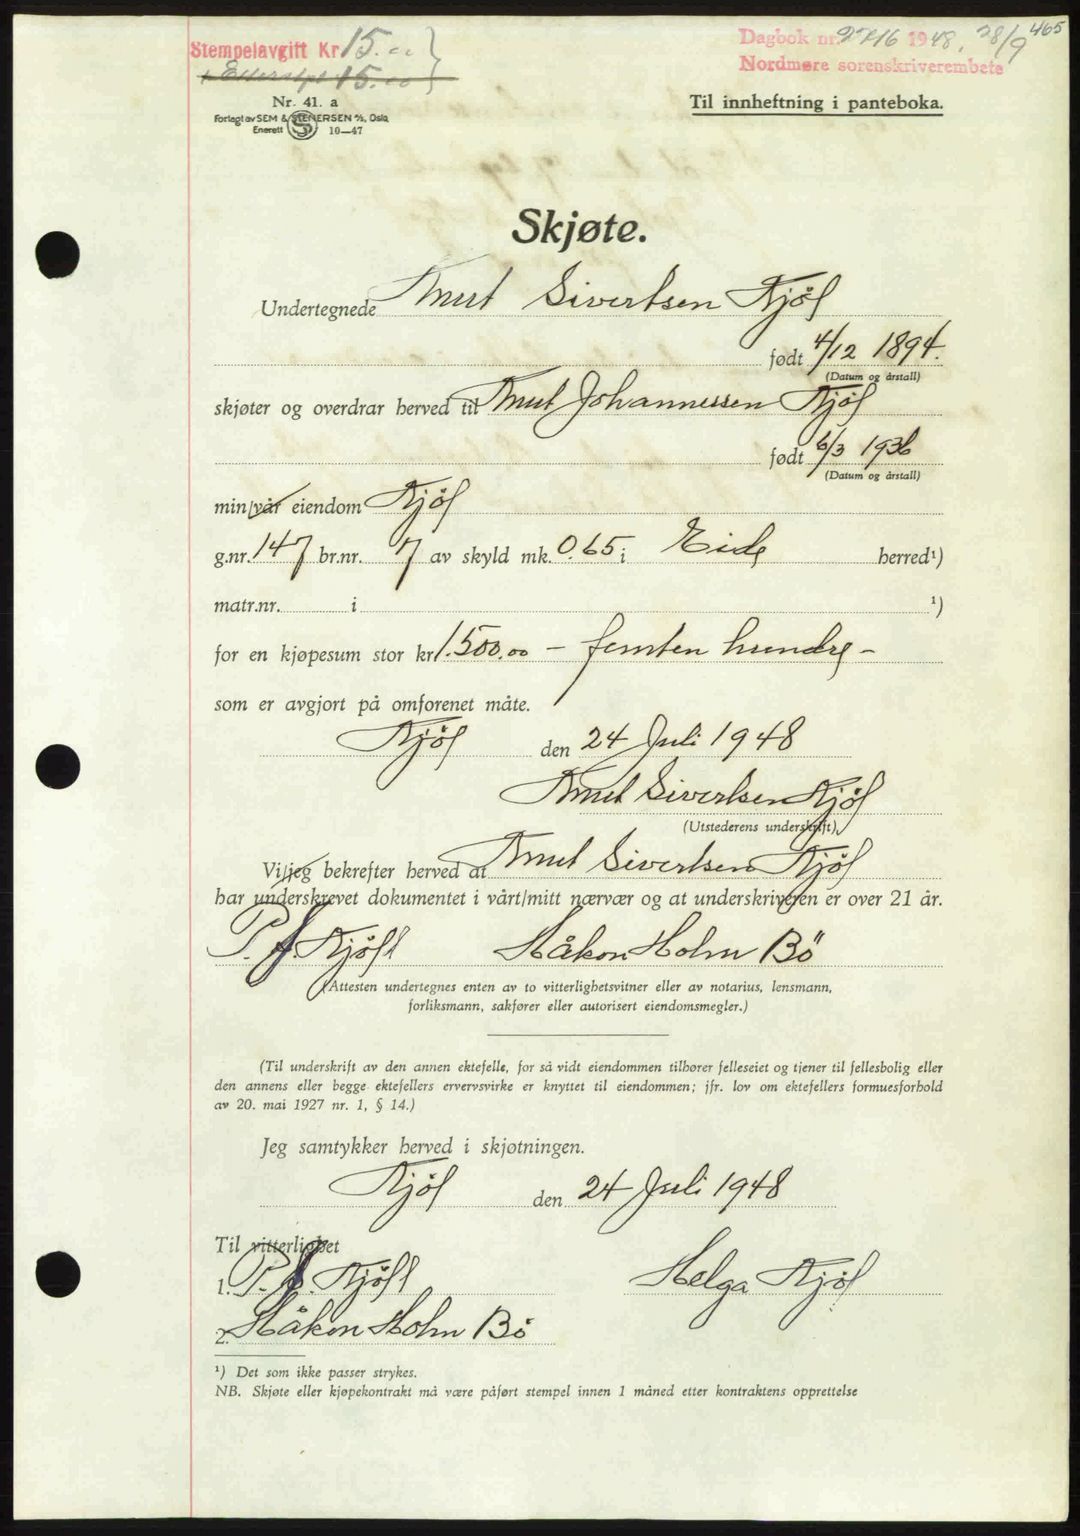 Stempelavgift Kr 15.00
+ Etterstpl 15.00
Dagbok nr. 2716 1948, 28/9 465
Nordmøre sorenskriverembete
Nr. 41. a
Forlagt av SEM & STENERSEN A/S, Oslo
Enerett 10—47
Til innheftning i panteboka.
Skjøte.
Undertegnede Knut Sivertsen Kjøl
født 4/12 1894.
(Datum og årstall)
skjøter og overdrar herved til Knut Johannessen Kjøl
født 6/3 1936
(Datum og årstall)
min/vår eiendom Kjøl
g.nr. 147 br.nr. 7 av skyld mk. 0.65 i Eide herred¹)
matr.nr. i ¹)
for en kjøpesum stor kr 1.500.00 — femten hundre —
som er avgjort på omforenet måte.
Kjøl den 24 Juli 1948
Knut Sivertsen Kjøl
(Utstederens underskrift)
Vi/jeg bekrefter herved at Knut Sivertsen Kjøl
har underskrevet dokumentet i vårt/mitt nærvær og at underskriveren er over 21 år.
P. J. Kjøll Håkon Holm Bö
(Attesten undertegnes enten av to vitterlighetsvitner eller av notarius, lensmann,
forliksmann, sakfører eller autorisert eiendomsmegler.)
(Til underskrift av den annen ektefelle, for så vidt eiendommen tilhører felleseiet og tjener til fellesbolig eller
den annens eller begge ektefellers ervervsvirke er knyttet til eiendommen; jfr. lov om ektefellers formuesforhold
av 20. mai 1927 nr. 1, § 14.)
Jeg samtykker herved i skjøtningen.
Kjøl den 24 Juli 1948
Til vitterlighet
1. P. J. Kjøll Helga Kjøl
2. Håkon Holm Bö
¹) Det som ikke passer strykes.
NB. Skjøte eller kjøpekontrakt må være påført stempel innen 1 måned etter kontraktens opprettelse